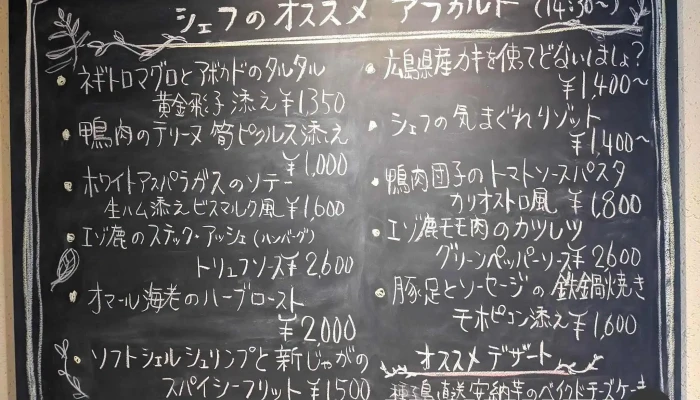 シェフのオススメ アラカルト (14:30〜)
・ネギトロマグロとアボカドのタルタル
黄金飛子添え ¥1,350
・鴨肉のテリーヌ 筍ピクルス添え
¥1,000
・ホワイトアスパラガスのソテー
生ハム添え ビスマルク風 ¥1,600
・エゾ鹿のステック・アッシェ(ハンバーグ)
トリュフソース ¥2,600
・オマール海老のハーブロースト
¥2,000
・ソフトシェルシュリンプと新じゃがの
スパイシーフリット ¥1,500
・広島県産カキを使ってどないしましょ?
¥1,400〜
・シェフの気まぐれリゾット
¥1,400〜
・鴨肉団子のトマトソースパスタ
カリオストロ風 ¥1,800
・エゾ鹿モモ肉のカツレツ
グリーンペッパーソース ¥2600
・豚足とソーセージの鉄鍋焼き
モホピコン添え ¥1,600
オススメデザート
種子島直送 安納芋のベイクドチーズケーキ